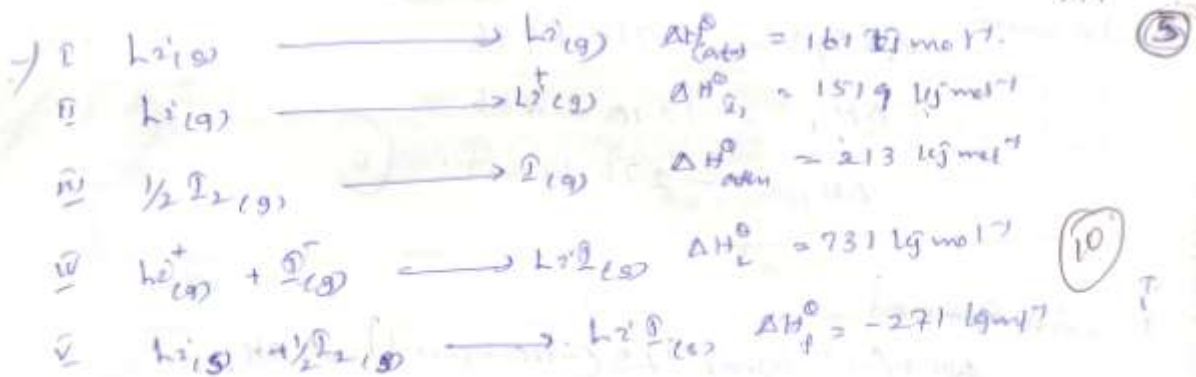 I Li(s) ⟶ Li(g) ΔH°(atn) = 161 kJ mol⁻¹. (5)
II Li(g) ⟶ Li⁺(g) ΔH°I₁ = 1519 kJ mol⁻¹
III 1/2 I₂(g) ⟶ I(g) ΔH°atn = 213 kJ mol⁻¹
IV Li⁺(g) + I⁻(g) ⟶ LiI(s) ΔH°L = 731 kJ mol⁻¹ (10)
V Li(s) + 1/2 I₂(s) ⟶ LiI(s) ΔH°f = -271 kJ mol⁻¹